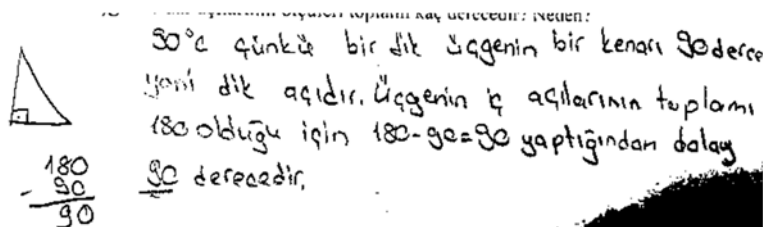 açılarının ölçüleri toplamı kaç derecedir? Neden?
90°c çünkü bir dik üçgenin bir kenarı 90 derce
yani dik açıdır. Üçgenin iç açılarının toplamı
180 olduğu için 180-90=90 yaptığından dolay
90 derecedir.
180
- 90
90